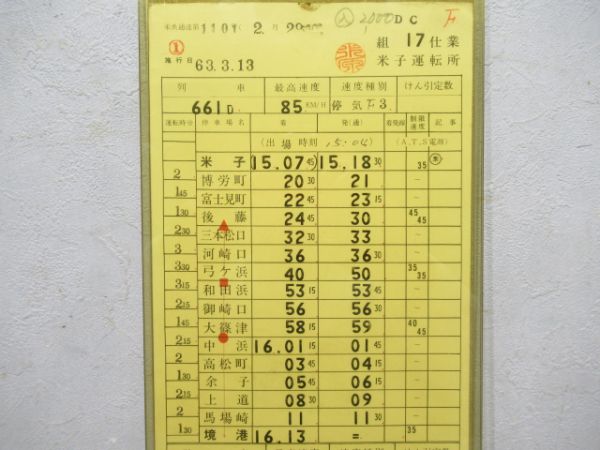 米鉄運達第1101号 2.月29
入 2000DC
① 組 17 仕業
施行日 63.3.13 米子運転所
列車 最高速度 速度種別 けん引定数
661D 85 KM/H 停気 3
運転時分 停車場名 着 発(通) 着発線 制限速度 記事
(出場時刻 15.04) (A.T.S電源)
米子 15.07 45 15.18 30 35
2 博労町 20 30 21 –
1 45 富士見町 22 45 23 15 –
1 30 後藤 24 45 30 45 45
2 30 三本松口 32 30 33 –
3 河崎口 36 36 30 –
3 30 弓ケ浜 40 50 35 35
3 15 和田浜 53 15 53 45 –
2 15 御崎口 56 56 30 –
1 45 大篠津 58 15 59 40 45
2 15 中浜 16.01 15 01 45 –
2 高松町 03 45 04 15 –
1 30 余子 05 45 06 15 –
2 15 上道 08 30 09 –
2 馬場崎 11 11 30 –
1 30 境港 16.13 = 35